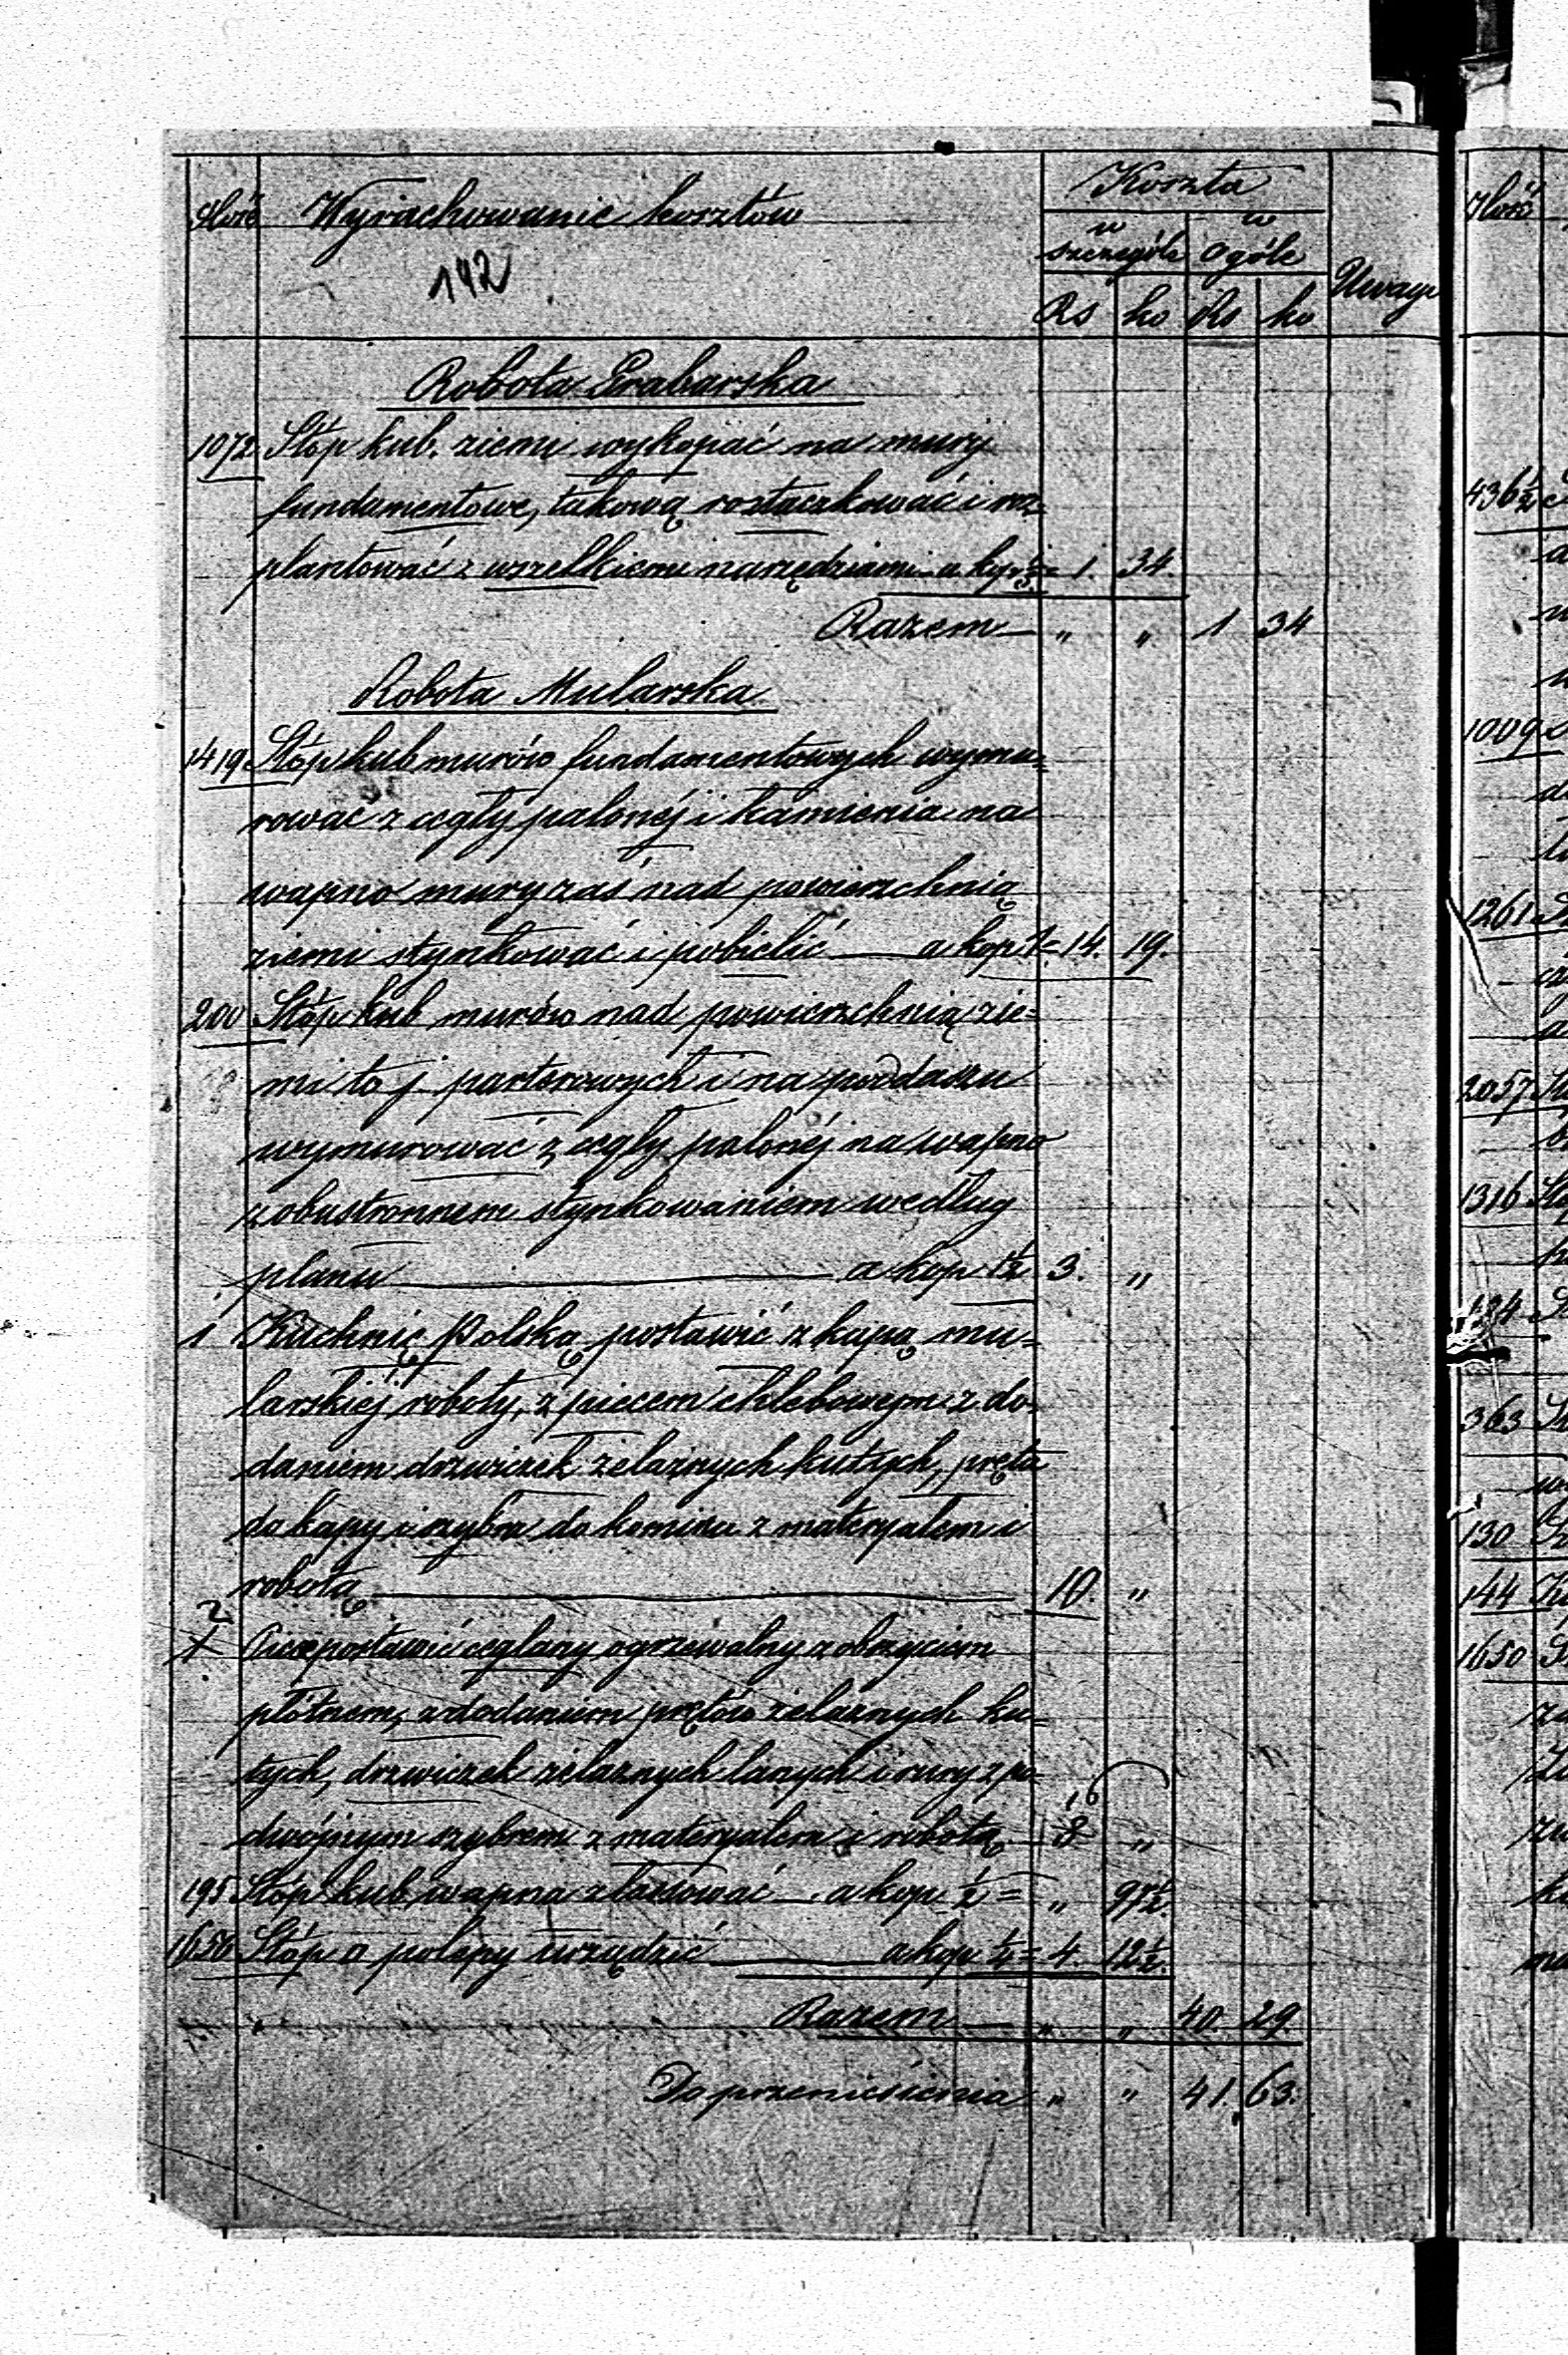 Ilość Wyrachowanie kosztów Koszta
w szczególe w ogóle Uwagi
142
Rs ko Rs ko
Robota Grabarska
1072 Stóp kub. ziemi wykopać na mury
fundamentowe, takową roztaczkować i roz=
plantować z wszelkiemi narzędziami a kop 1/8 = 1. 34.
Razem — " " 1 34
Robota Mularska
1419 Stóp kub murów fundamentowych wymu=
rowac z cegły palonéj i kamienia na
wapno mury zaś nad powierzchnią
ziemi stynkować i pobielić — a kop 1 = 14. 19.
200 Stóp kub murów nad powierzchnią zie=
mi to j parterowych i na poddaszu
wymurować z cegły palonéj na wapno
z obustronnem stynkowaniem według
planu — a kop 1½ 3. "
1 Kuchnię Polską postawić z kapą mu=
larskiéj roboty, z piecem chlebowym z do=
daniem drzwiczek żelaznych kutych, pręta
do kapy i szybra do komina z materyałem i
robotą — 10. "
2
1 Piec postawić ceglany ogrzewalny z obszyciem
płótnem, z dodaniem prętów żelaznych ku=
tych, drzwiczek żelaznych lanych i rury z po=
16
dwójnym szybrem z materyałem i robotą 8 "
195 Stóp kub wapna zlasować — a kop ½ = " 97½.
1650 Stóp □ polepy urządzić — a kop ¼ = 4. 12½.
Razem — " " 40. 29.
Do przeniesienia " " 41. 63.
Ilość
436½
1009
1261
2057
1316
134
363
130
144
1650